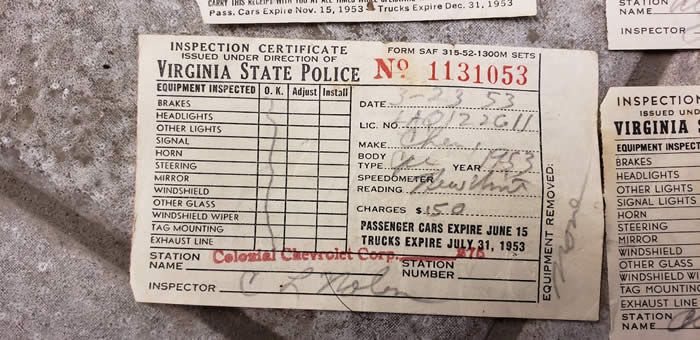 CARRY THIS RECEIPT WITH YOU AT ALL TIMES WHILE OPERATING
Pass. Cars Expire Nov. 15, 1953 Trucks Expire Dec. 31, 1953
STATION
NAME
INSPECTOR
INSPECTION CERTIFICATE
ISSUED UNDER DIRECTION OF
VIRGINIA STATE POLICE
FORM SAF 315-52-1300M SETS
No 1131053
EQUIPMENT INSPECTED O. K. Adjust Install
BRAKES
HEADLIGHTS
OTHER LIGHTS
SIGNAL
HORN
STEERING
MIRROR
WINDSHIELD
OTHER GLASS
WINDSHIELD WIPER
TAG MOUNTING
EXHAUST LINE
DATE 3-23 53
LIC. NO.
MAKE Chev.
BODY
TYPE YEAR 1953
SPEEDOMETER
READING
CHARGES $ .50
PASSENGER CARS EXPIRE JUNE 15
TRUCKS EXPIRE JULY 31, 1953
EQUIPMENT REMOVED: none
STATION
NAME Colonial Chevrolet Corp. STATION
NUMBER 876
INSPECTOR
INSPECTION
ISSUED UND
VIRGINIA S
EQUIPMENT INSPECT
BRAKES
HEADLIGHTS
OTHER LIGHTS
SIGNAL LIGHTS
HORN
STEERING
MIRROR
WINDSHIELD
OTHER GLASS
WINDSHIELD WIP
TAG MOUNTING
EXHAUST LINE
STATION
NAME
INSPECTOR